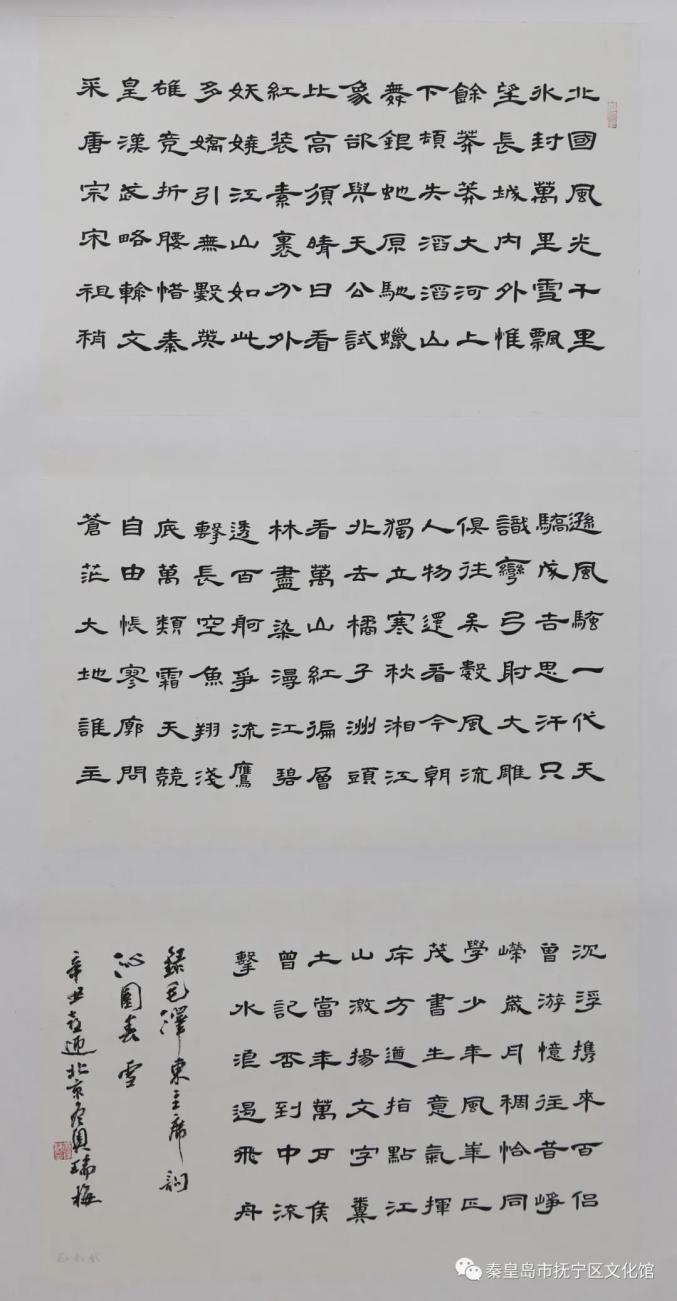 北國風光千里
冰封萬里雪飄
望長城内外惟
餘莽莽大河上
下頓失滔滔山
舞銀蛇原馳蠟
象欲與天公試
比高須晴日看
紅装素裹分外
妖嬈江山如此
多嬌引無數英
雄竞折腰惜秦
皇漢武略輸文
采唐宗宋祖稍
遜風騷一代天
驕成吉思汗只
識彎弓射大雕
俱往矣數風流
人物還看今朝
獨立寒秋湘江
北去橘子洲頭
看萬山紅徧層
林盡染漫江碧
透百舸爭流鷹
擊長空魚翔淺
底萬類霜天競
自由悵寥廓問
蒼茫大地誰主
沉浮携來百侣
曾游憶往昔崢
嶸歲月稠恰同
學少年風華正
茂書生意氣揮
斥方遒指點江
山激揚文字糞
土當年萬户侯
曾記否到中流
擊水浪遏飛舟
錄毛澤東主席詞
沁園春雪
辛丑喜迎北京冬奥瑞梅
秦皇岛市抚宁区文化馆